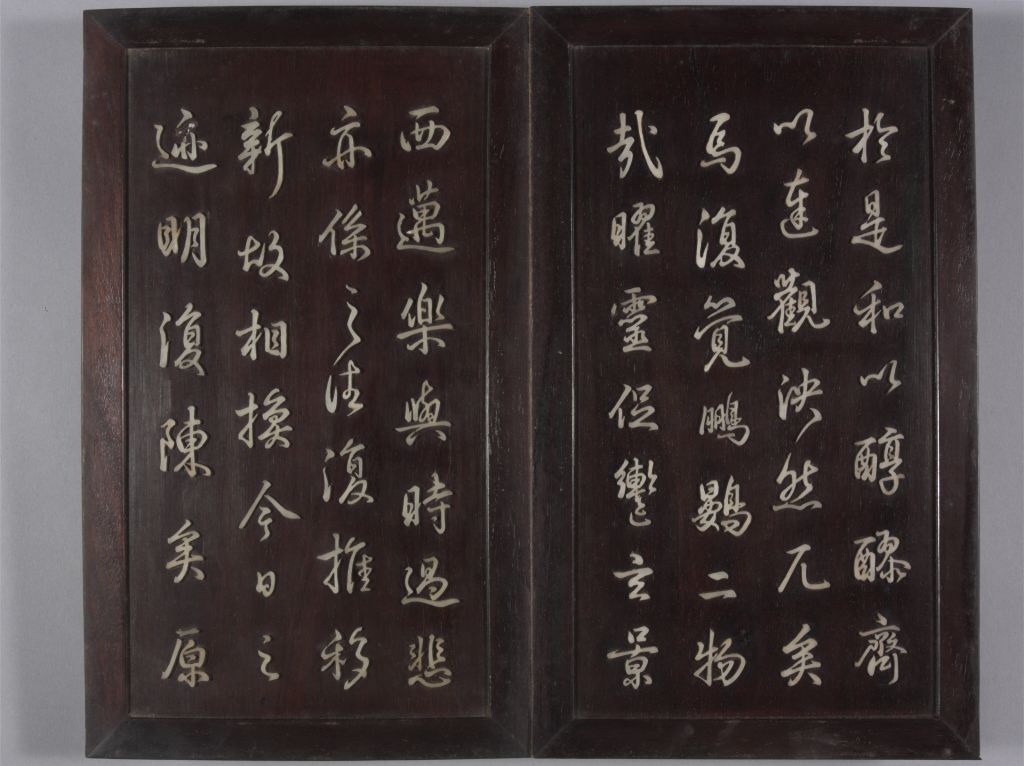 於是和以醇醪齊
以達觀泱然兀矣
焉復覺鵬鷃二物
哉曜靈促轡玄景
西邁樂與時過悲
亦係之往復推移
新故相換今日之
迹明復陳矣原